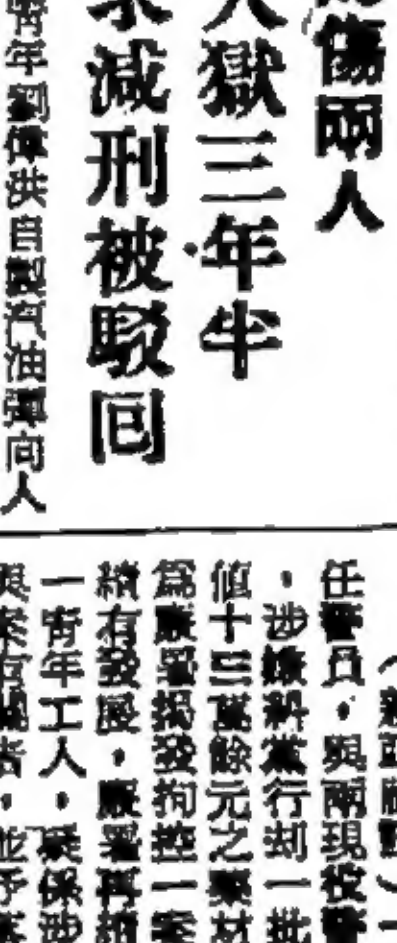 傷兩人
獄三年半
減刑被駁回
青年劉偉洪自製汽油彈向人
任警員，與兩現役警
，涉嫌夥黨行刦一批
值十三萬餘元之藥材
為廉署揭發拘控一案
續有發展，廉署再
一青年工人，疑係涉
與案有關者，並予